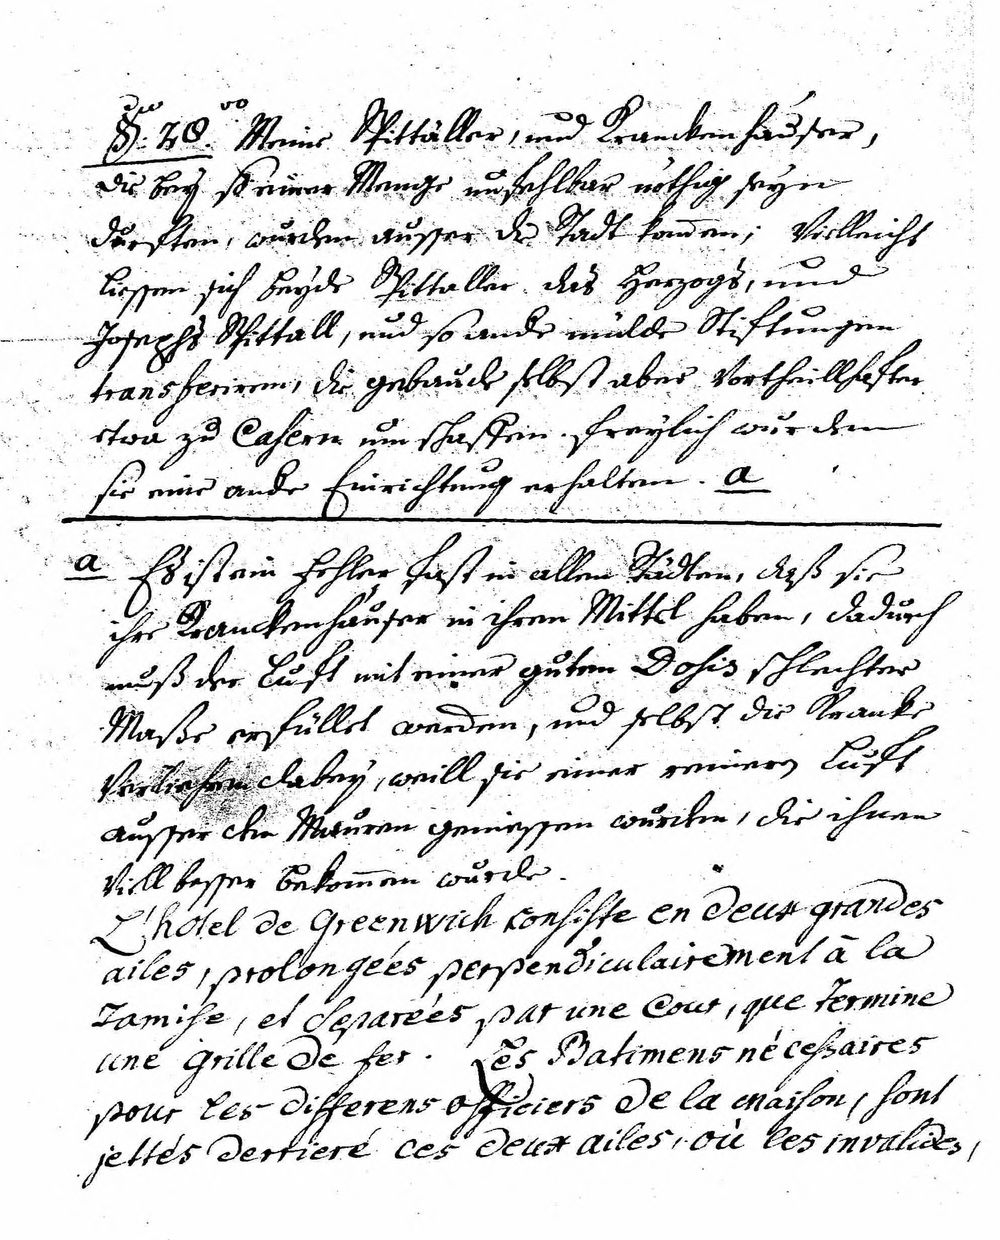 §. 28. Meine Spittäller, und Kranckenhäuser,
die bey so einer Menge unfehlbar nöthig seyn
durften, wurden ausser de Stadt komen; Vielleicht
liessen sich beyde Spittaller des Herzogs, und
Josephs Spittall, und so ande milde Stiftungen
transferiren, die gebaude selbst aber Vortheillhafter
etwa zu Casern um schaffen. freylich wurden
sie eine ande Einrichtung erhalten. a
a Es ist ein Fehler fast in allen Städten, daß sie
ihre Kranckenhäuser in ihren Mittel haben, dadurch
muß der Luft mit einer guten Dosis schlechter
Maße erfüllet werden, und selbst die Kranke
Verliehren dabey, weill sie einer reinern Luft
ausser den Mauren geniessen wurden, die ihnen
Viell besser bekommen wurde.
L'hotel de Greenwich consiste en deux grandes
ailes, prolongées perpendiculairement à la
Tamise, et separées par une Cour, que termine
une grille de fer. Les Batimens nécessaires
pour les differens officiers de la maison, sont
jettés derrieré ces deux ailes, où les invalides,